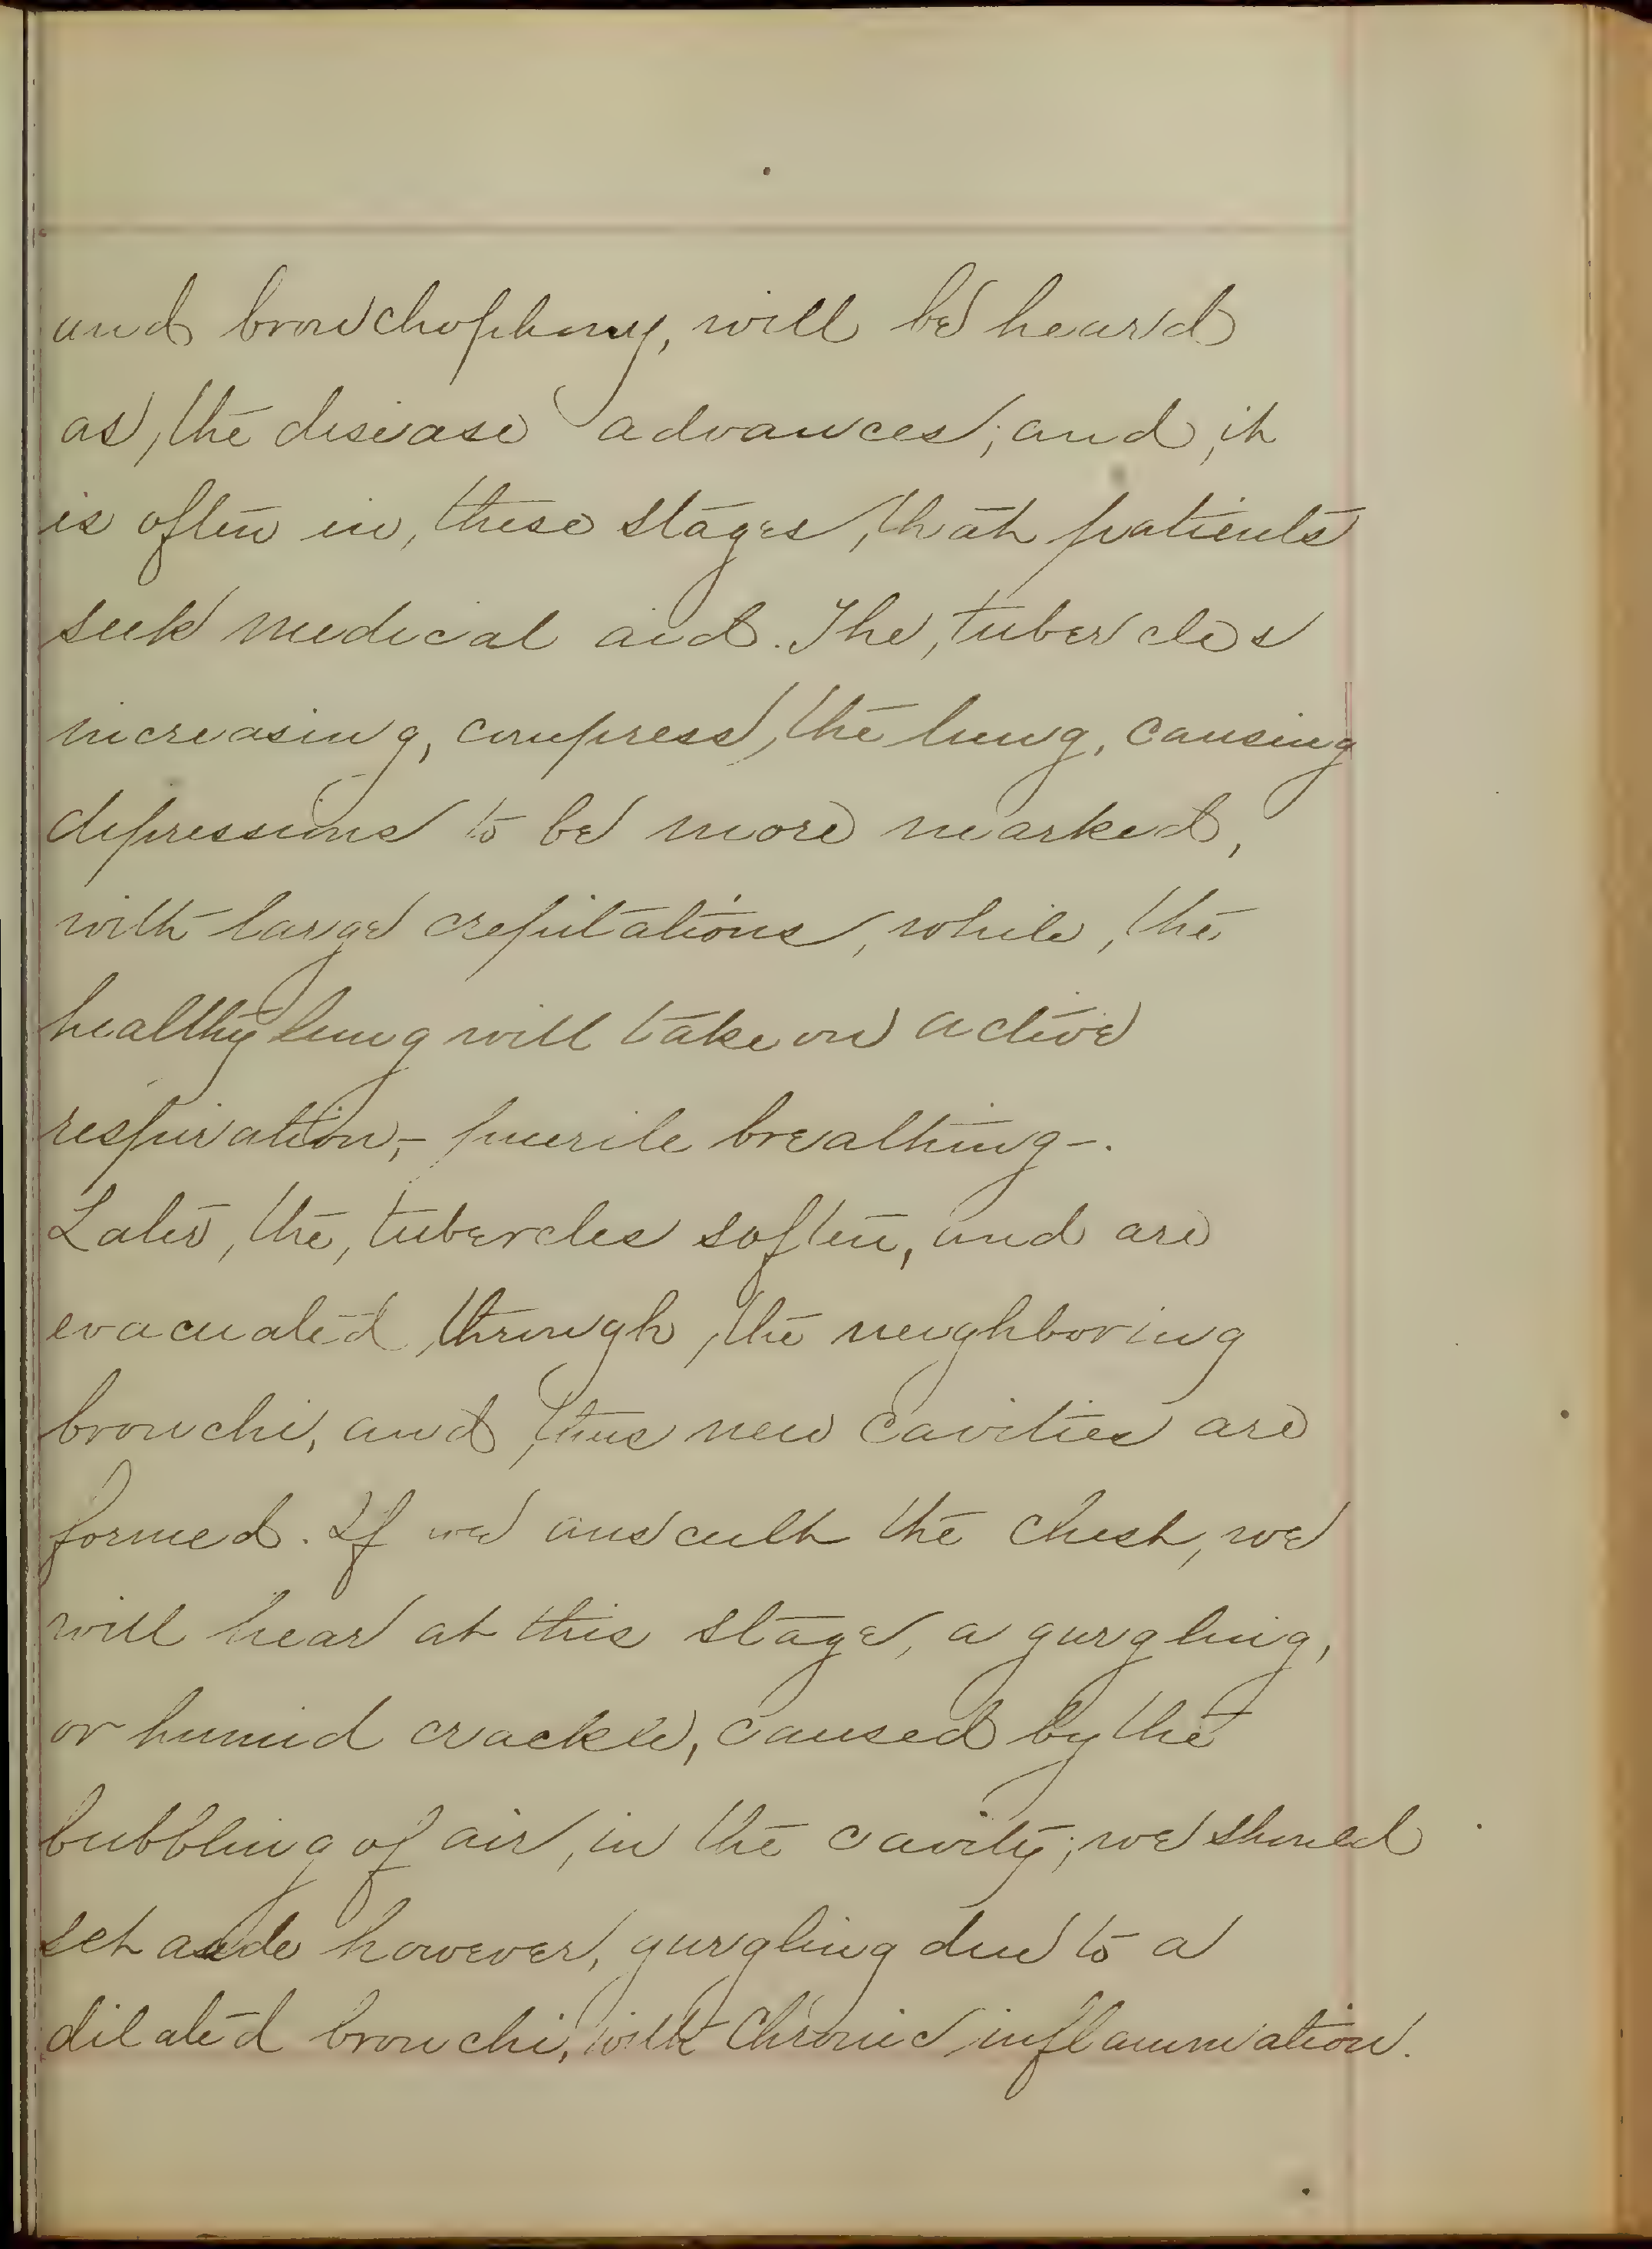 and bronchophony, will be heard
as the disease advances; and it
is often in these stages that patients
seek medical aid. The tubercles
increasing, compress the lung, causing
depressions to be more marked,
with large crepitations, while the
healthy lung will take on active
respiration,- puerile breathing-.
Later the tubercles soften, and are
evacuated through the neighboring
bronchi, and thus new cavities are
formed. If we auscult the chest, we
will hear at this stage, a gurgling,
or humid crackle, caused by the
bubbling of air, in the cavity; we should
set aside however, gurgling due to a
dilated bronchi, with chronic inflammation.